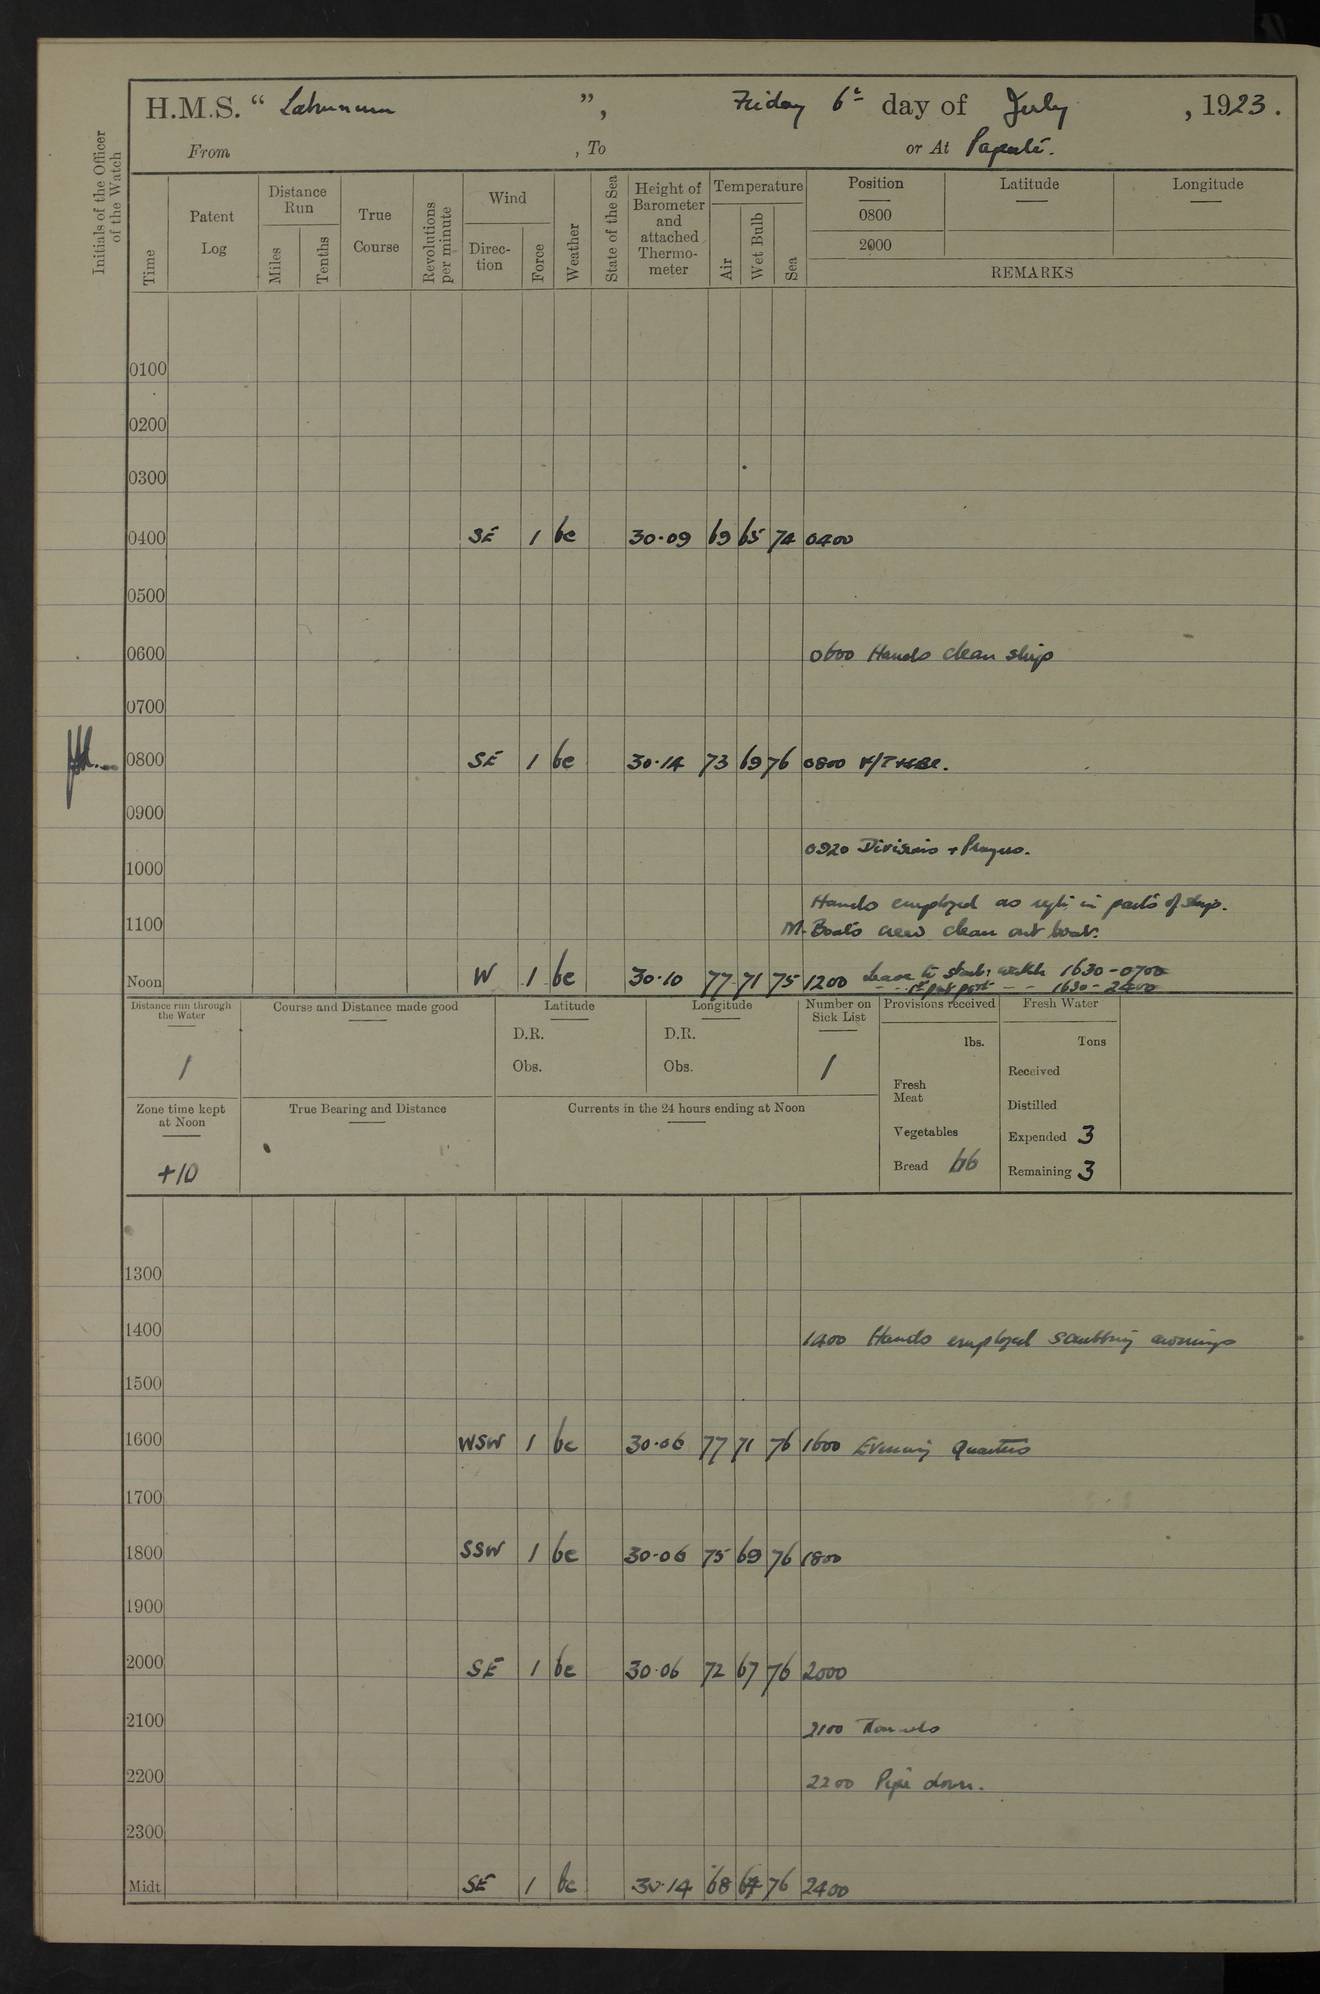 H.M.S. “ Laburnum ”, Friday 6th day of July , 1923.
From , To or At Papeete.
Initials of the Officer of the Watch
Time
Patent Log
Distance Run
Miles
Tenths
True Course
Revolutions per minute
Wind
Direc-tion
Force
Weather
State of the Sea
Height of Barometer and attached Thermo-meter
Temperature
Air
Wet Bulb
Sea
Position Latitude Longitude
0800
2000
REMARKS
0100
0200
0300
0400 SE 1 bc 30.09 69 65 74 0400
0500
0600 0600 Hands clean ship
0700
0800 SE 1 bc 30.14 73 69 76 0800
0900
0920 Divisions + Prayers.
1000
Hands employed as in parts of ship.
1100 M. Boat's crew clean out boat.
Noon W 1 bc 30.10 77 71 75 1200 Leave to watch 1630-0700
1st part port - - 1630-2400
Distance run through the Water Course and Distance made good Latitude Longitude Number on Sick List Provisions received Fresh Water
D.R. D.R. lbs. Tons
1 Obs. Obs. 1 Fresh Meat Received
Zone time kept at Noon True Bearing and Distance Currents in the 24 hours ending at Noon Distilled
Vegetables Expended 3
+10 Bread 66 Remaining 3
1300
1400 1400 Hands employed scrubbing awnings
1500
1600 WSW 1 bc 30.06 77 71 76 1600 Evening Quarters
1700
1800 SSW 1 bc 30.06 75 69 76 1800
1900
2000 SE 1 bc 30.06 72 67 76 2000
2100 2100 Rounds
2200 2200 Pipe down.
2300
Midt SE 1 bc 30.14 68 64 76 2400